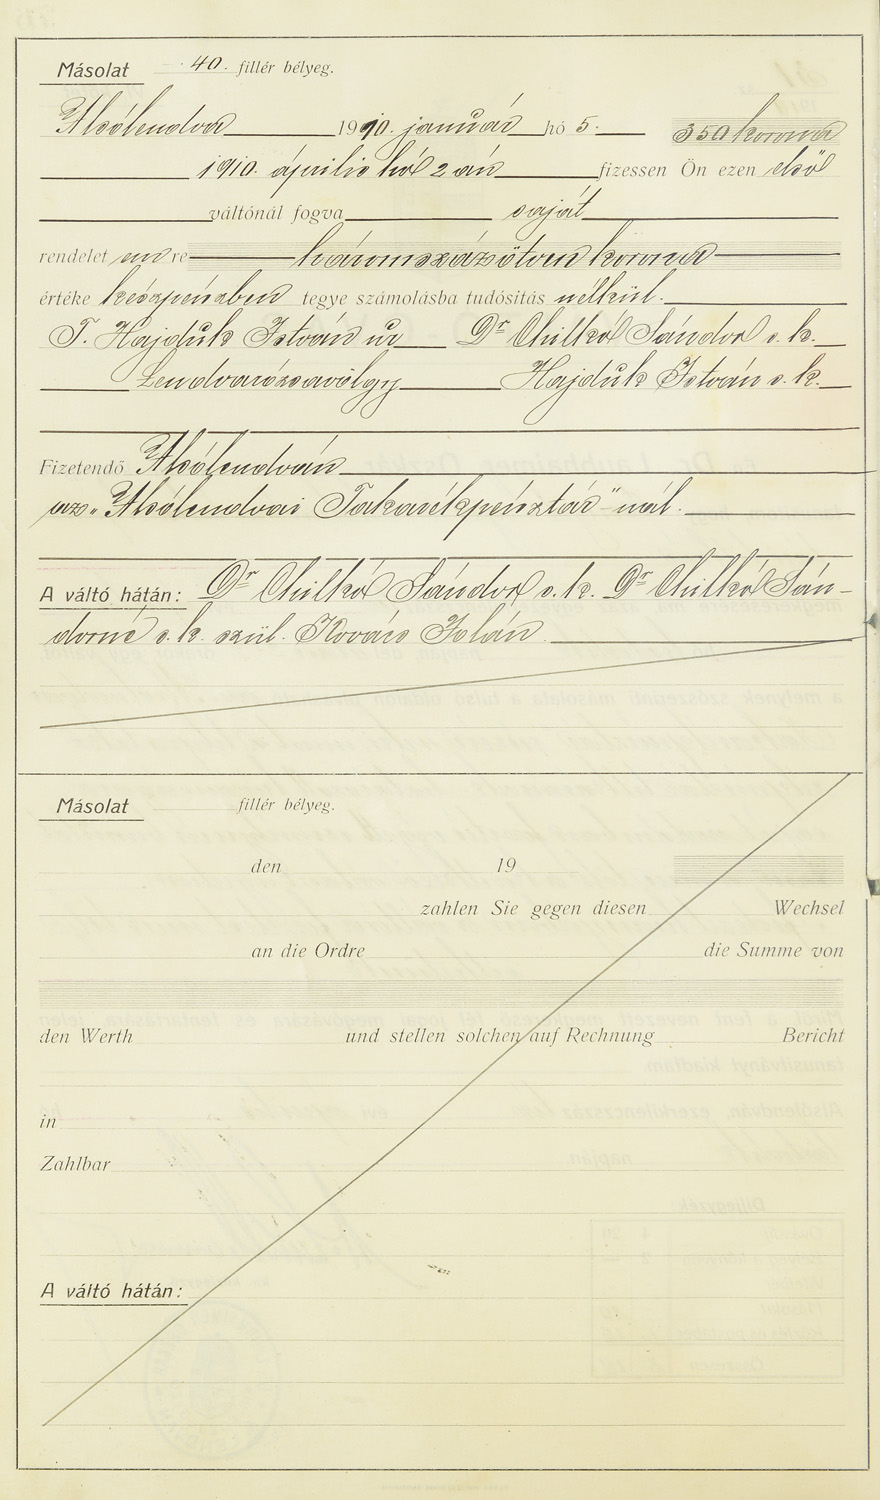 Másolat 40. fillér bélyeg.
Alsólendva 1910. január hó 5. 350 korona
1910. április hó 2 án fizessen Ön ezen első
váltónál fogva saját
rendelet em re háromszázötven korona
értéke készpénzben tegye számolásba tudósítás nélkül.
T. Hajduk István úr Dr Chilkó Sándor s. k.
Lendvarózsavölgy Hajduk István s. k.
Fizetendő Alsólendván
az "Alsólendvai Takarékpénztár"-nál.
A váltó hátán: Dr Chilkó Sándor s. k. Dr Chilkó Sán-
dorné s. k. szül. Kovács Jolán
Másolat fillér bélyeg.
den 19
zahlen Sie gegen diesen Wechsel
an die Ordre die Summe von
den Werth und stellen solchen auf Rechnung Bericht
in
Zahlbar
A váltó hátán: